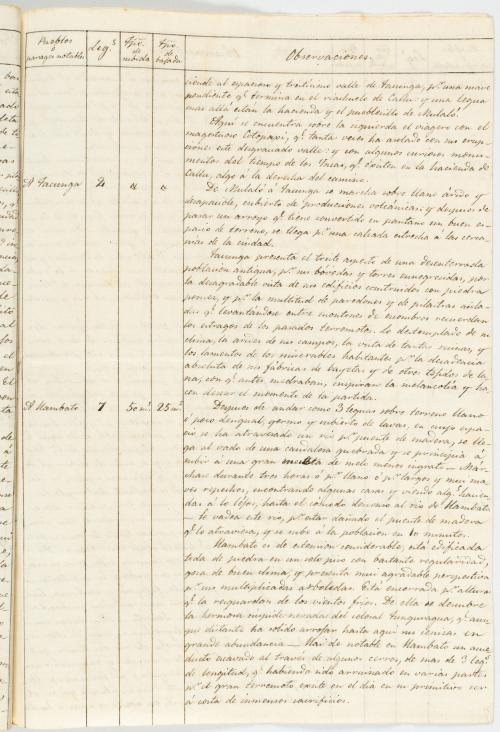 Pueblos
ó
parages notables
Leg.s
tpo.
de
subida
tpo.
de
bajada
Observaciones.
ciende al espacioso y tristísimo valle de Tacunga, pr. una suave
pendiente qe. termina en el riachuelo de Callu: y una legua
mas allá están la hacienda y el pueblecillo de Mulaló.
Aquí se encuentra sobre la izquierda el viagero con el
magestuoso Cotopaxi, qe. tantas veces ha asolado con sus erup-
ciones este desgraciado valle: y con algunos curiosos monu-
mentos del tiempo de los Yncas, qe. existen en la hacienda de
Callu, algo á la derecha del camino.
A Tacunga
4
"
"
De Mulaló á Tacunga se marcha sobre llano árido y
desapacible, cubierto de producciones volcánicas: y despues de
pasar un arroyo qe. tiene convertido en pantano un buen es-
pacio de terreno, se llega pr. una calzada estrecha á las cerca-
nias de la ciudad.
Tacunga presenta el triste aspecto de una desenterrada
poblacion antigua, pr. sus bóvedas y torres ennegrecidas, por
la desagradable vista de sus edificios construidos con piedra
pomez, y pr. la multitud de paredones y de pilastras aisla-
das qe. levantandose entre montones de escombros recuerdan
los estragos de los pasados terremotos. Lo destemplado de su
clima, la aridez de sus campos, la vista de tantas ruinas, y
los lamentos de los miserables habitantes pr. la decadencia
absoluta de sus fábricas de bayetas y de otros tejidos de la-
na, con qe. antes medraban, inspiran la melancolia y ha-
cen desear el momento de la partida.
A Hambato
7
50 ms.
25 ms.
Despues de andar como 3 leguas sobre terreno llano
ó poco desigual, yermo y cubierto de lavas, en cuyo espa-
cio se ha atravesado un rio pr. puente de madera, se lle-
ga al vado de una caudalosa quebrada y se principia á
subir á una gran meseta de suelo menos ingrato - Mar-
chase durante tres horas ó pr. llano ó pr. largos y mui sua-
ves repechos, encontrando algunas casas y viendo algs. hacien-
das á lo lejos, hasta el cómodo descenso al rio de Hambato
- Se vadea este rio, pr. estar dañado el puente de madera
qe. lo atraviesa, y se sube á la poblacion en 10 minutos.
Hambato es de estension considerable, está edificada
toda de piedra en un solo piso con bastante regularidad,
goza de buen clima, y presenta mui agradable perspectiva
pr. sus multiplicadas arboledas. Está encerrada pr. alturas
qe. la resguardan de los vientos frios. De ella se descubre
la hermosa cúspide nevada del colosal Tunguragua, qe. aun-
que distante ha solido arrojar hasta aquí sus cenizas en
grande abundancia - Hai de notable en Hambato un acue-
ducto escavado al través de algunos cerros, de mas de 3 legs.
de longitud, qe. habiendo sido arruinado en varias partes
pr. el gran terremoto existe en el dia en su primitivo ser
á costa de inmensos sacrificios.